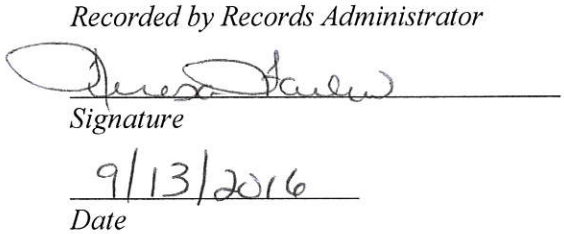 Recorded by Records Administrator
Teresa
Signature
9/13/2016
Date